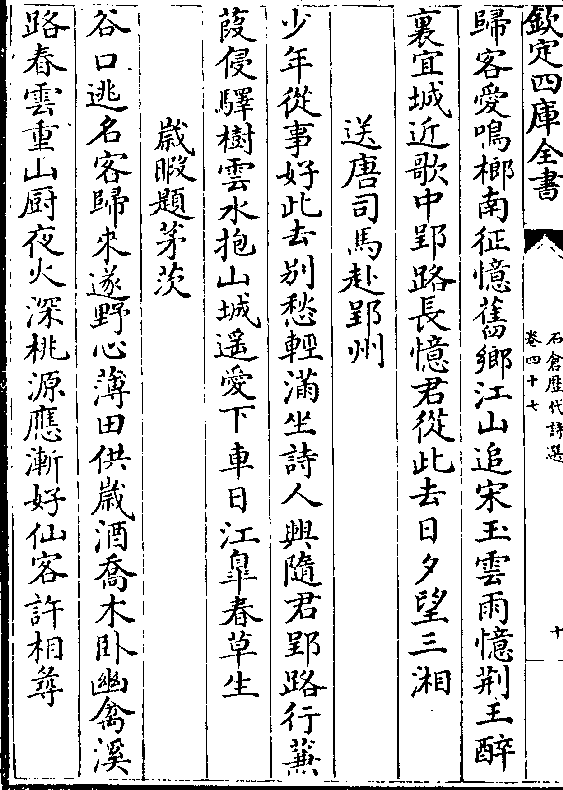 欽定四庫全書
石倉歷代詩選
卷四十七
十
歸客愛鳴榔南征憶舊鄉江山追宋玉雲雨憶荆王醉
裏宜城近歌中郢路長憶君從此去日夕望三湘
送唐司馬赴郢州
少年從事好此去別愁輕滿坐詩人興隨君郢路行蒹
葭侵驛樹雲水抱山城遥愛下車日江臯春草生
歲暇題茅茨
谷口逃名客歸來遂野心薄田供歲酒喬木卧幽禽溪
路春雲重山厨夜火深桃源應漸好仙客許相尋